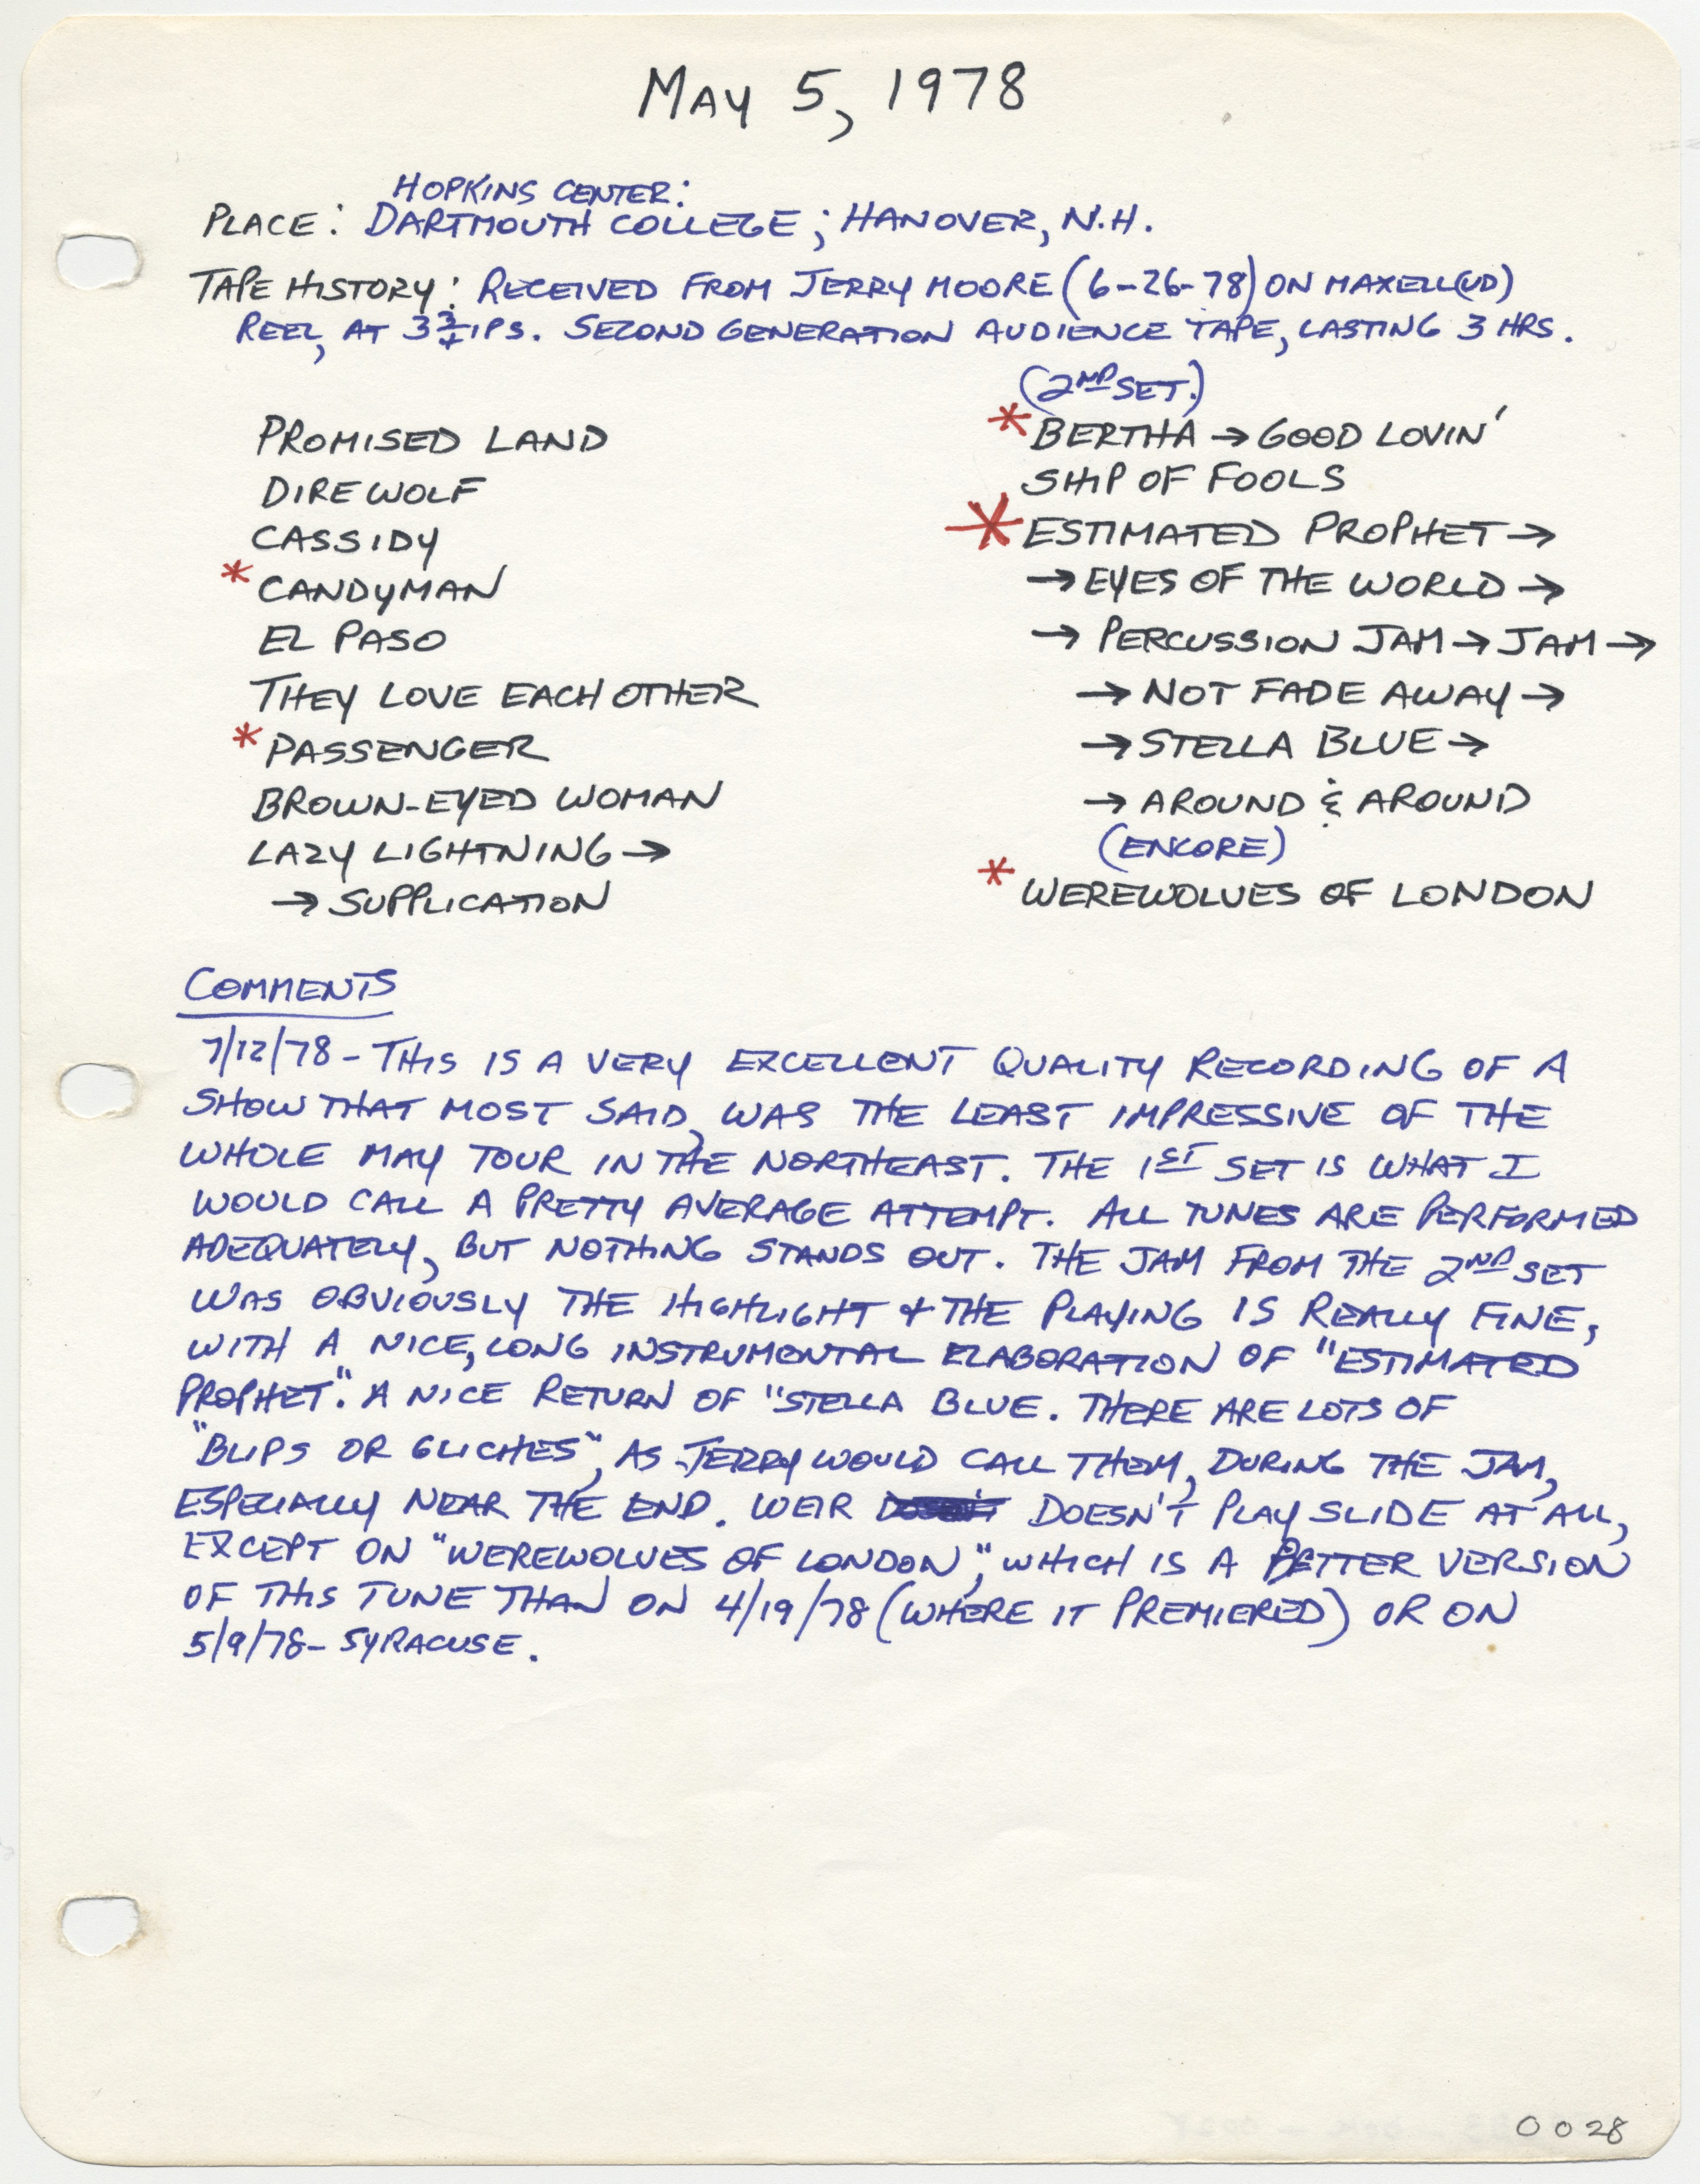 MAY 5, 1978
HOPKINS CENTER:
PLACE: DARTMOUTH COLLEGE; HANOVER, N.H.
TAPE HISTORY: RECEIVED FROM JERRY MOORE (6-26-78) ON MAXELL (UD)
REEL, AT 3 3/4 IPS. SECOND GENERATION AUDIENCE TAPE, LASTING 3 HRS.
PROMISED LAND
DIREWOLF
CASSIDY
* CANDYMAN
EL PASO
THEY LOVE EACH OTHER
* PASSENGER
BROWN-EYED WOMAN
LAZY LIGHTNING →
→ SUPPLICATION
(2ND SET.)
* BERTHA → GOOD LOVIN'
SHIP OF FOOLS
* ESTIMATED PROPHET →
→ EYES OF THE WORLD →
→ PERCUSSION JAM → JAM →
→ NOT FADE AWAY →
→ STELLA BLUE →
→ AROUND & AROUND
(ENCORE)
* WEREWOLVES OF LONDON
COMMENTS
7/12/78 - THIS IS A VERY EXCELLENT QUALITY RECORDING OF A
SHOW THAT MOST SAID, WAS THE LEAST IMPRESSIVE OF THE
WHOLE MAY TOUR IN THE NORTHEAST. THE 1ST SET IS WHAT I
WOULD CALL A PRETTY AVERAGE ATTEMPT. ALL TUNES ARE PERFORMED
ADEQUATELY, BUT NOTHING STANDS OUT. THE JAM FROM THE 2ND SET
WAS OBVIOUSLY THE HIGHLIGHT & THE PLAYING IS REALLY FINE,
WITH A NICE, LONG INSTRUMENTAL ELABORATION OF "ESTIMATED
PROPHET". A NICE RETURN OF "STELLA BLUE. THERE ARE LOTS OF
"BLIPS OR GLICHES", AS JERRY WOULD CALL THEM, DURING THE JAM,
ESPECIALLY NEAR THE END. WEIR DOESN'T PLAY SLIDE AT ALL,
EXCEPT ON "WEREWOLVES OF LONDON," WHICH IS A BETTER VERSION
OF THIS TUNE THAN ON 4/19/78 (WHERE IT PREMIERED) OR ON
5/9/78 - SYRACUSE.
0028